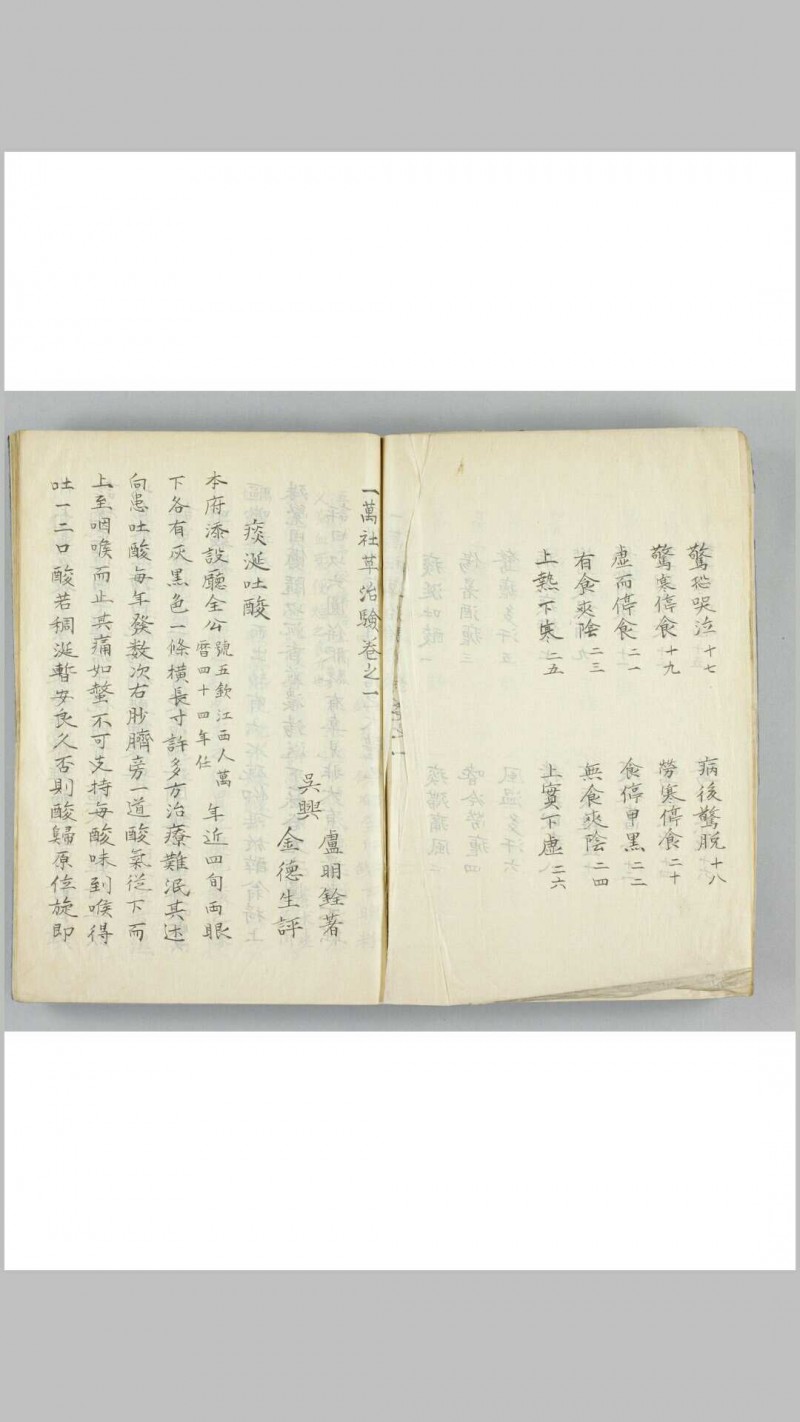 驚恐哭泣十七　病後驚脫十八
驚寒停食十九　勞寒停食二十
虛而停食二一　食停甲黑二二
有食夾陰二三　無食夾陰二四
上熱下寒二五　上實下虛二六
一萬社草治驗卷之一
盧明銓著
吳興
金德生評
痰涎吐酸
本府添設廳全公號五欽江西人萬曆四十四年任年近四旬両眼
下各有灰黑色一條橫長寸許多方治療難泯其述
向患吐酸每年發数次右肋臍旁一道酸氣從下而
上至咽喉而止其痛如螫不可支持每酸味到喉得
吐一二口酸若稠涎暫安良久否則酸歸原位旋即